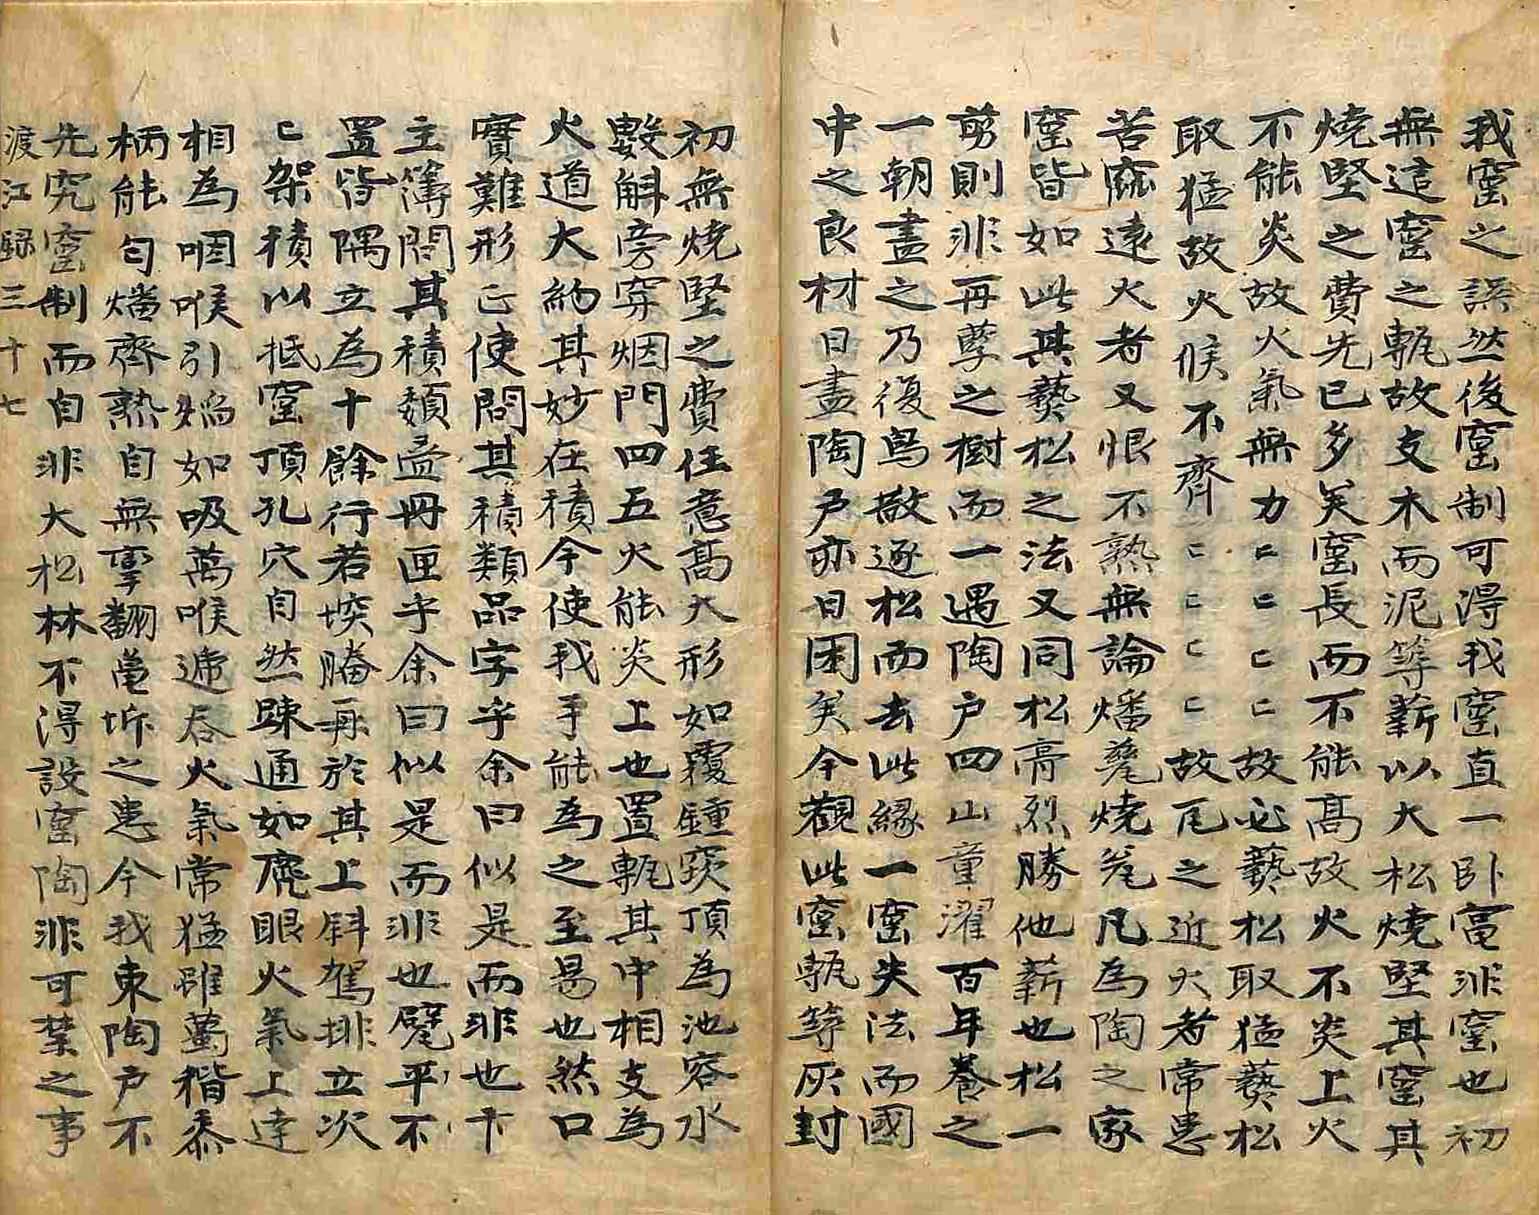 我窰之誤然後窰制可得我窰直一卧竈非窰也初
無造窰之甎故支木而泥築薪以大松燒堅其窰其
燒堅之費先已多矣窰長而不能高故火不炎上火
不能炎故火氣無力匕匕匕匕故必爇松取猛爇松
取猛故火候不齊匕匕匕匕故瓦之近火者常患
苦窳遠火者又恨不熟無論燔甆燒瓮凡為陶之家
窰皆如此其爇松之法又同松膏烈勝他薪也松一
剪則非再孽之樹而一遇陶户四山童濯百年養之
一朝盡之乃復鳥散逐松而去此緣一窰失法而國
中之良材日盡陶户亦日困矣今觀此窰甎築灰封
初無燒堅之費任意高大形如覆鍾窰頂為池容水
數斛旁穿烟門四五火能炎上也置甎其中相支為
火道大約其妙在積今使我手能為之至易也然口
實難形正使問其積類品字乎余曰似是而非也卞
主簿問其積類疊冊匣乎余曰似是而非也甓平不
置皆隅立為十餘行若堗塍再於其上斜駕排立次
匕架積以抵窰頂孔穴自然疎通如麂眼火氣上達
相為咽喉引焰如吸萬喉遞吞火氣常猛雖薥稭黍
柄能匀燔齊熟自無攣翻龜坼之患今我東陶户不
先究窰制而自非大松林不得設窰陶非可禁之事
渡江録三十七